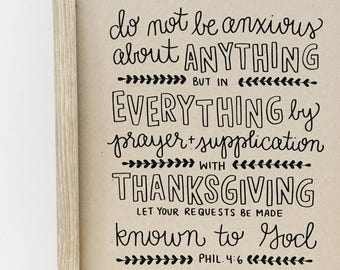 do not be anxious
about ANYTHING
BUT IN
EVERYTHING by
prayer + supplication
WITH
THANKSGIVING
LET YOUR REQUESTS BE MADE
known to God
PHIL. 4:6